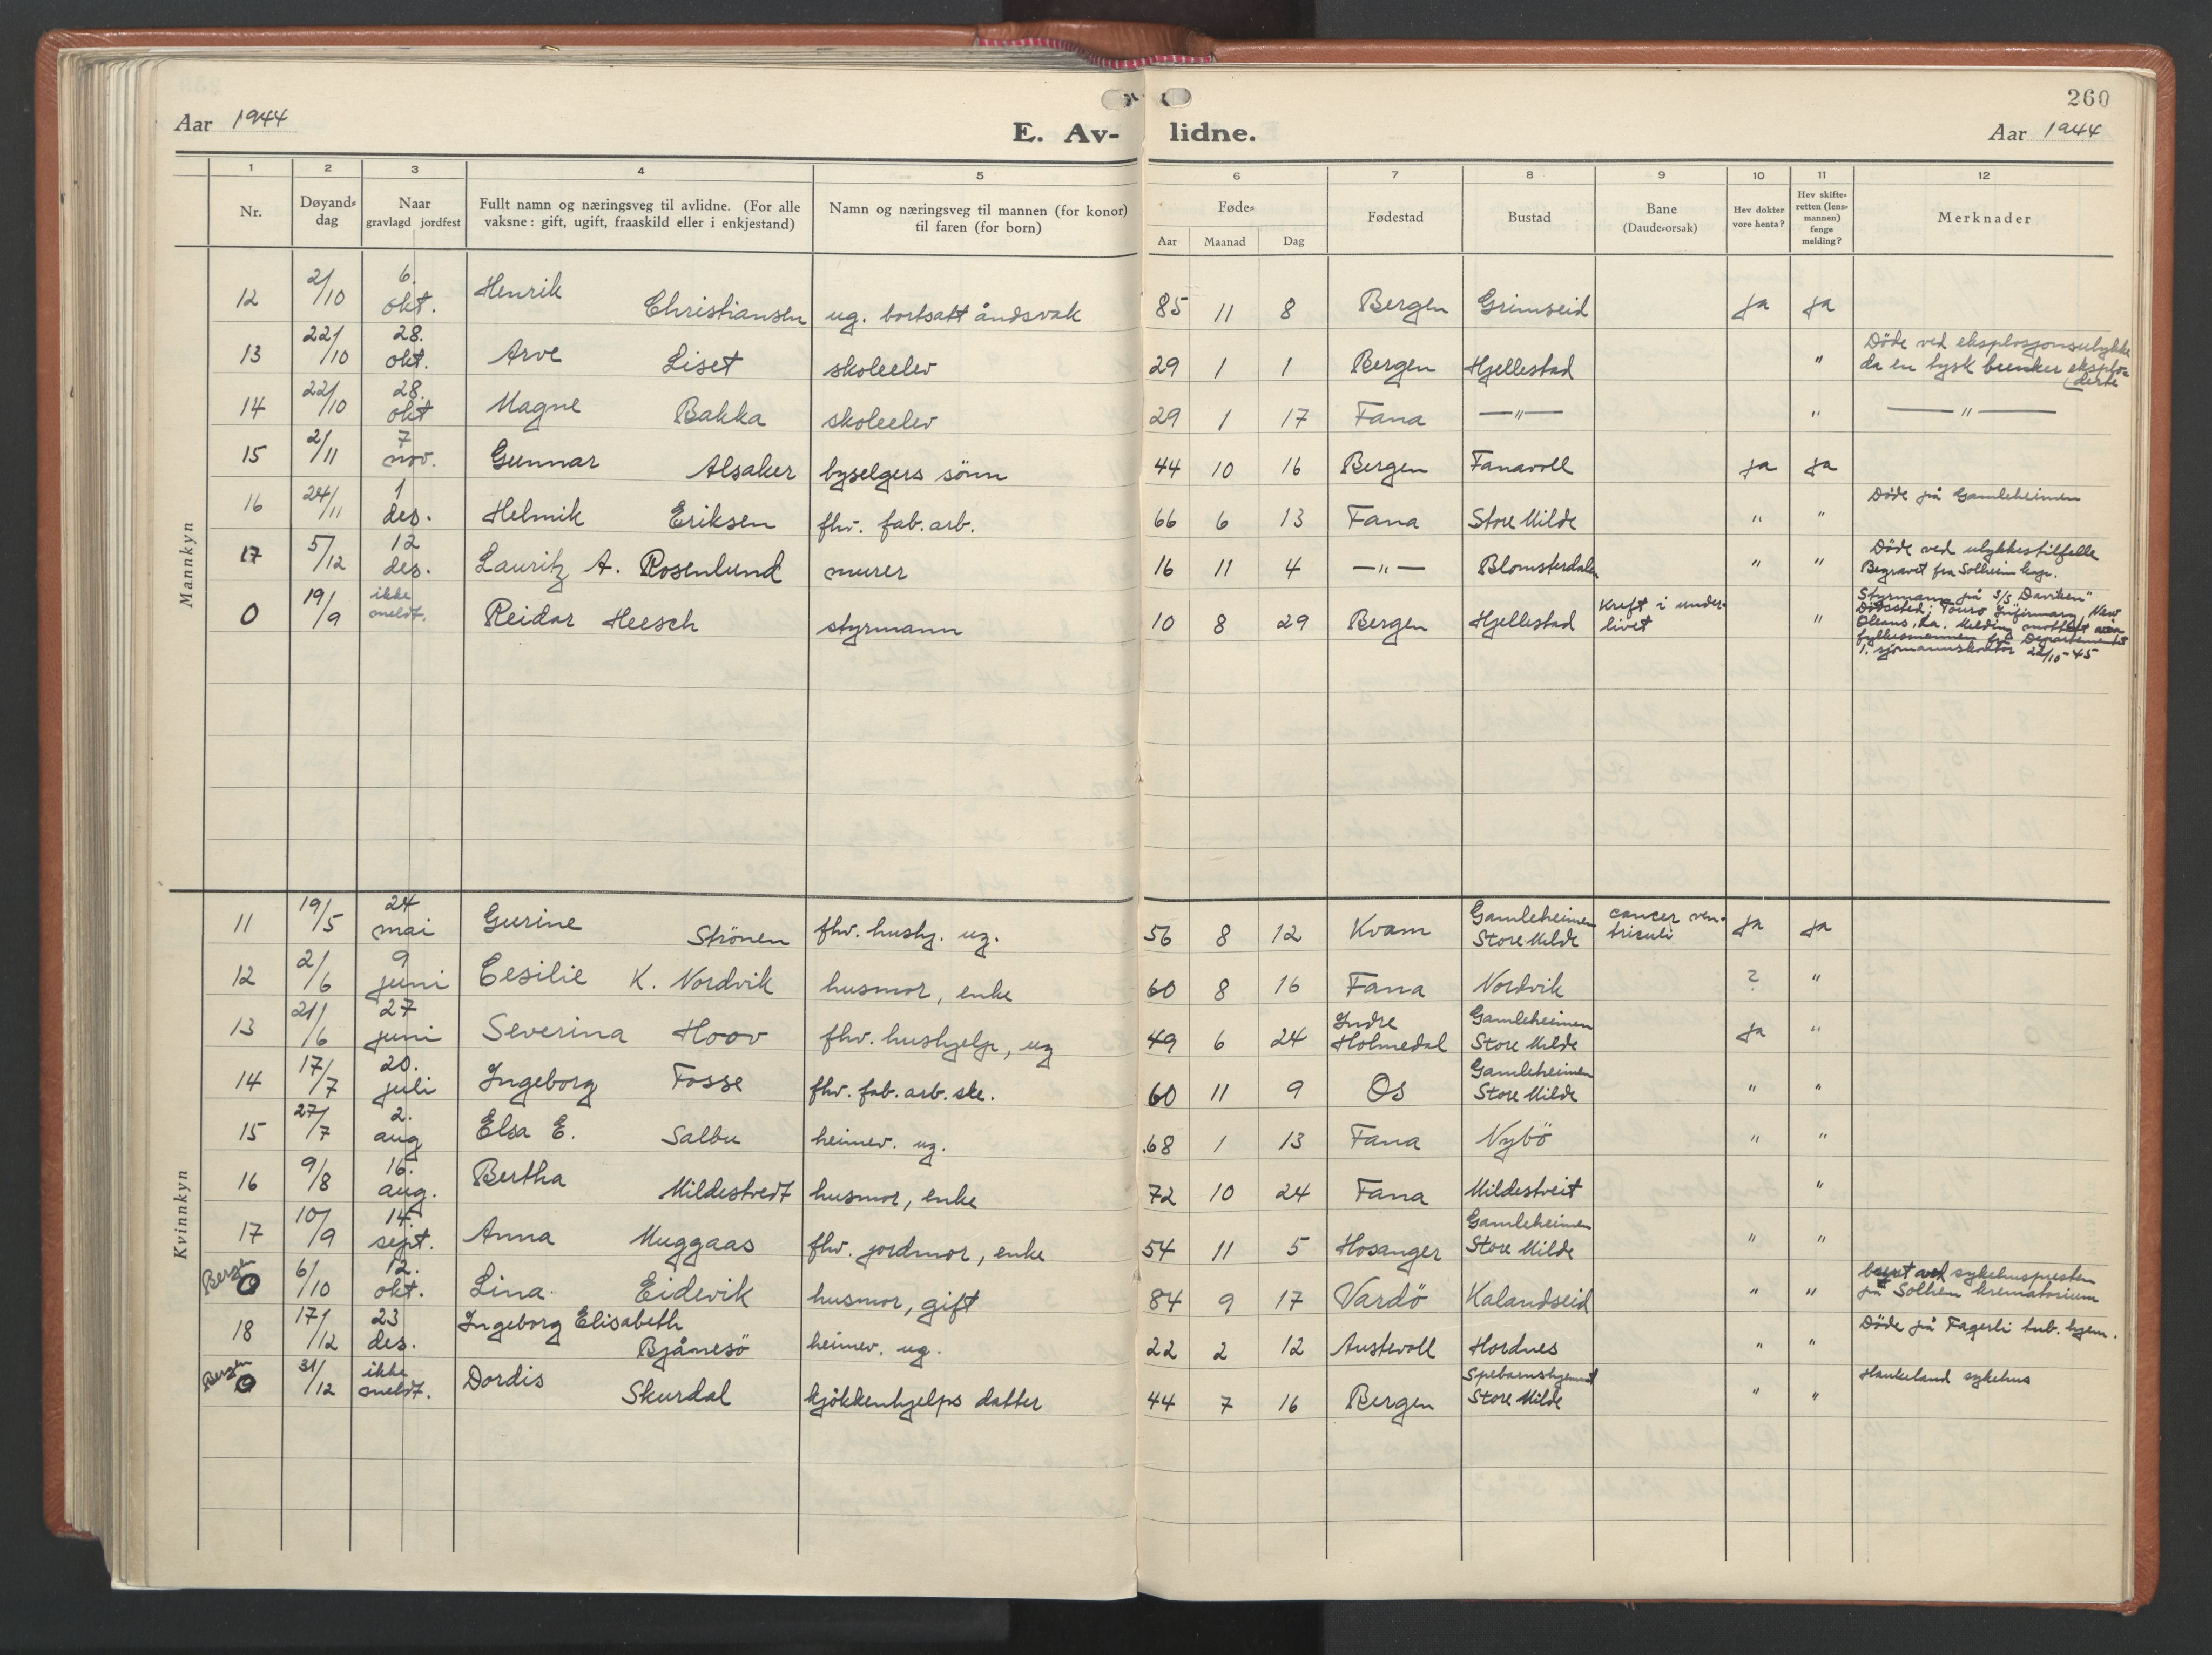 260
Aar 1944 E. Av- lidne. Aar 1944
1 2 3 4 5 6 7 8 9 10 11 12
Nr. Døyand-dag Naar gravlagd jordfest Fullt namn og næringsveg til avlidne. (For alle vaksne: gift, ugift, fraaskild eller i enkjestand) Namn og næringsveg til mannen (for konor) til faren (for born) Føde- Aar Maanad Dag Fødestad Bustad Bane (Daude-orsak) Hev dokter vore henta? Hev skifte-retten (lens-mannen) fenge melding? Merknader
Mannkyn
12 2/10 6. okt. Henrik Christiansen ug. bortsatt åndsvak 85 11 8 Bergen Grimseid ja ja
13 22/10 28. okt. Arve Liset skoleelev 29 1 1 Bergen Hjellestad " Døde ved eksplosjonsulykke da en tysk bunker eksplo=derte
14 22/10 28. okt Magne Bakka skoleelev 29 1 17 Fana —"— " —"—
15 2/11 7 nov. Gunnar Alsaker byselgers sönn 44 10 16 Bergen Fanavoll ja ja
16 24/11 1 des. Helmik Eriksen fhv. fab. arb. 66 6 13 Fana Store Milde " " Döde på Gamleheimen
17 5/12 12 des. Lauritz A. Rosenlund murer 16 11 4 —"— Blomsterdalen " " Döde ved ulykkestilfelle Begravet fra Solheim kap.
0 19/9 ikke meldt. Reidar Heesch styrmann 10 8 29 Bergen Hjellestad Kreft i under-livet " Styrmann på S/S "Daviken" Dödssted: Touro Infirmary, New Oleans, La. Melding mottatt fylkesmannen Departementet 1. sjömannskontor 22/10-45
Kvinnkyn
11 19/5 24 mai Gurine Strönen fhv. hushj. ug. 56 8 12 Kvam Gamleheimen Store Milde cancer ven-triculi ja ja
12 2/6 9 juni Cesilie K. Nordvik husmor, enke 60 8 16 Fana Nordvik ? "
13 21/6 27 juni Severina Hoov fhv. hushjelp, ug 49 6 24 Indre Holmedal Gamleheimen Store Milde ja "
14 17/7 20. juli Ingeborg Fosse fhv. fab. arb. ske. 60 11 9 Os Gamleheimen Store Milde " "
15 27/7 2. aug Elsa E. Salbu heimev. ug. 68 1 13 Fana Nybö " "
16 9/8 16. aug. Bertha Mildestvedt husmor, enke 72 10 24 Fana Mildestveit "
17 10/9 14. sept. Anna Muggaas fhv. jordmor, enke 54 11 5 Hosanger Gamleheimen Store Milde " "
Bergen 0 6/10 12. okt. Lina Eidevik husmor, gift 84 9 17 Vardö Kalandseid " " sykehuspresten på Solheim krematorium
18 17/12 23 des. Ingeborg Elisabeth Bjånesö heimev. ug. 22 2 12 Austevoll Hordnes " " Döde på Fagerli tub. hjem.
Bergen 0 31/12 ikke meldt. Dordis Skurdal kjökkenhjelps datter 44 7 16 Bergen Spebarnshjemmet Store Milde " " Haukeland sykehus